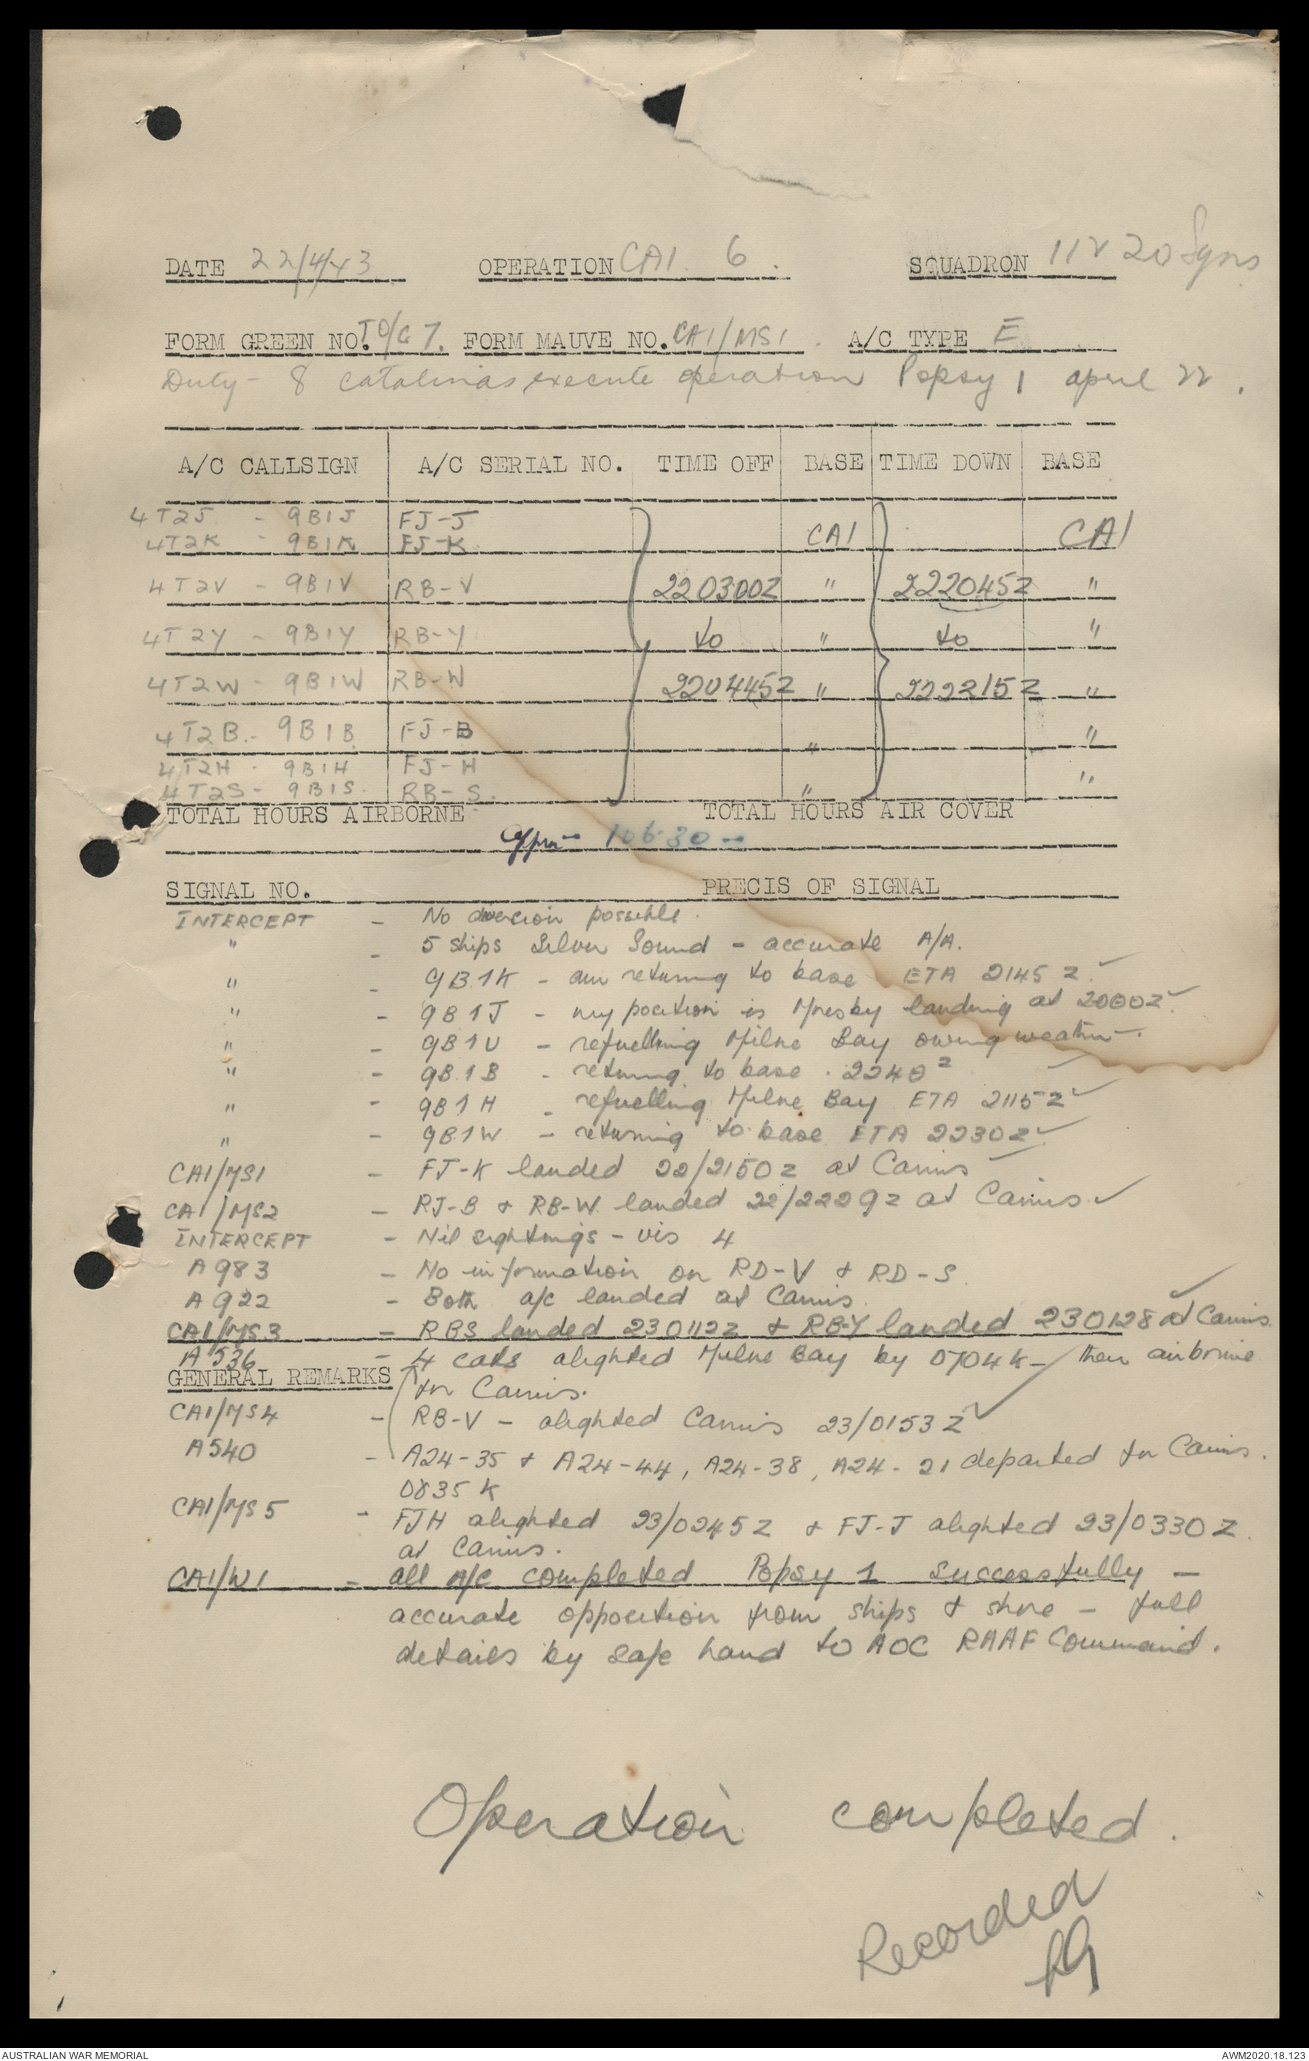 DATE 22/4/43 OPERATION CA1 6. SQUADRON 11 & 20 Sqns
FORM GREEN NO. TO/G7. FORM MAUVE NO. CA1/MS1. A/C TYPE E
Duty - 8 Catalinas execute operation Popsy 1 april 22.
A/C CALLSIGN A/C SERIAL NO. TIME OFF BASE TIME DOWN BASE
4T2J - 9B1J FJ-J
4T2K - 9B1K FJ-K CA1 CA1
4T2V - 9B1V RB-V 220300Z " 222045Z "
4T2Y - 9B1Y RB-Y to " to "
4T2W - 9B1W RB-W 220445Z " 222215Z "
4T2B - 9B1B FJ-B " "
4T2H - 9B1H FJ-H "
4T2S - 9B1S. RB-S. "
TOTAL HOURS AIRBORNE TOTAL HOURS AIR COVER
106.30
SIGNAL NO. PRECIS OF SIGNAL
INTERCEPT - No diversion possible.
" - 5 ships Silver Sound - accurate A/A.
" - 9B1K - am returning to base ETA 2145Z
" - 9B1J - my position is Moresby landing at 2000Z
" - 9B1U - refuelling Milne Bay owing weather
" - 9B1B - returning to base. 2240Z
" - 9B1H - refuelling Milne Bay ETA 2115Z
" - 9B1W - returning to base ETA 2230Z
CA1/MS1 - FJ-K landed 22/2150Z at Cairns
CA1/MS2 - RJ-B & RB-W landed 22/2229Z at Cairns
INTERCEPT - Nil sightings - vis 4
A983 - No information on RD-V & RD-S
A922 - Both a/c landed at Cairns
CA1/MS3 - RBS landed 230112Z & RB-Y landed 230128 at Cairns.
A536 - 4 cats alighted Milne Bay by 0704K - then airborne
GENERAL REMARKS for Cairns.
CA1/MS4 - RB-V - alighted Cairns 23/0153Z
A540 - A24-35 & A24-44, A24-38, A24-21 departed for Cairns.
0835K
CA1/MS5 - FJH alighted 23/0245Z & FJ-J alighted 23/0330Z
at Cairns.
CA1/W1 - all A/C completed Popsy 1 successfully -
accurate opposition from ships & shore - full
details by safe hand to AOC RAAF Command.
Operation completed.
Recorded
AUSTRALIAN WAR MEMORIAL AWM2020.18.123